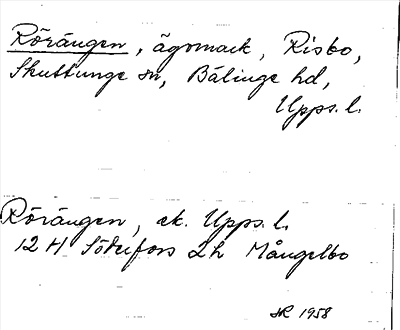 Rörängen, ägomark, Risbo,
Skuttunge sn, Bälinge hd,
Upps. l.
Rörängen, ek. Upps. l.
12 H Söderfors 2h Mångelbo
HR 1958